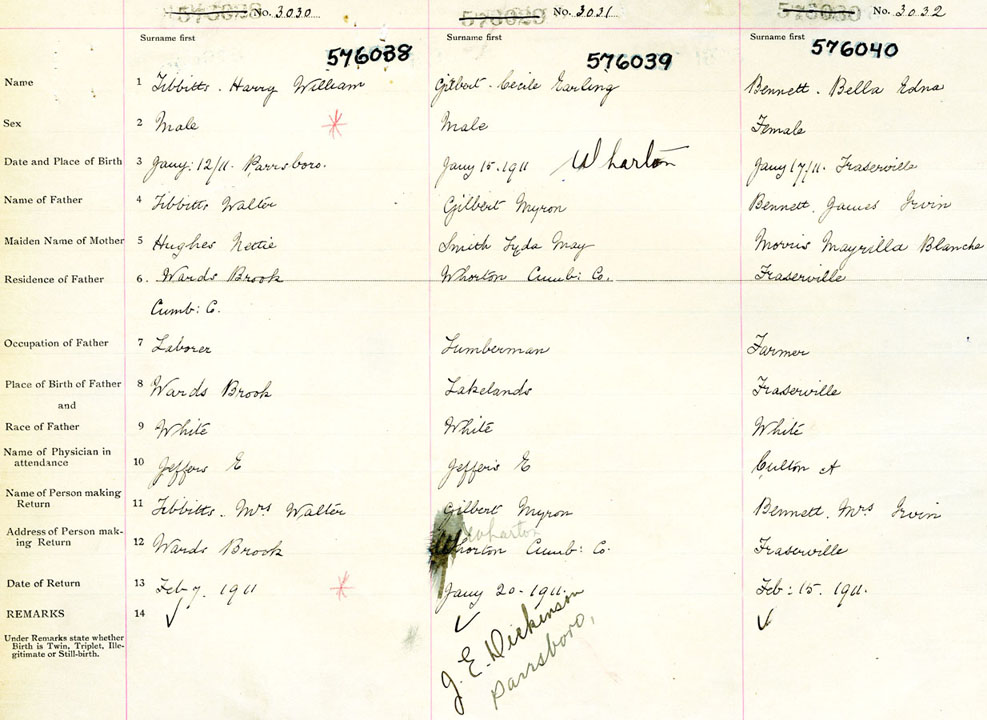 No. 3030
No. 3031
No. 3032
Surname first
Surname first
Surname first
576038
576039
576040
Name 1 Tibbitts. Harry William
Gilbert. Cecile Earling
Bennett. Bella Edna
Sex 2 Male
Male
Female
Date and Place of Birth 3 Jany: 12/11. Parrsboro.
Jany 15. 1911 Wharton
Jany 17/11. Fraserville
Name of Father 4 Tibbitts Walter
Gilbert Myron
Bennett. James Irvin
Maiden Name of Mother 5 Hughes Nettie
Smith Lyda May
Morris Mayrilla Blanche
Residence of Father 6. Wards Brook
Whorton Cumb: Co.
Fraserville
Cumb: C.
Occupation of Father 7 Laborer
Lumberman
Farmer
Place of Birth of Father 8 Wards Brook
Lakelands
Fraserville
and
Race of Father 9 White
White
White
Name of Physician in
attendance 10 Jeffers E
Jeffers E
Culton A
Name of Person making
Return 11 Tibbitts. Mrs Walter
Gilbert Myron
Bennett. Mrs Irvin
Address of Person mak-
ing Return 12 Wards Brook
Wharton
Whorton Cumb: Co.
Fraserville
Date of Return 13 Feb 7. 1911
Jany 20. 1911.
Feb: 15. 1911.
REMARKS 14 ✓
✓
✓
Under Remarks state whether
Birth is Twin, Triplet, Ille-
gitimate or Still-birth.
J. E. Dickinson
Parrsboro,